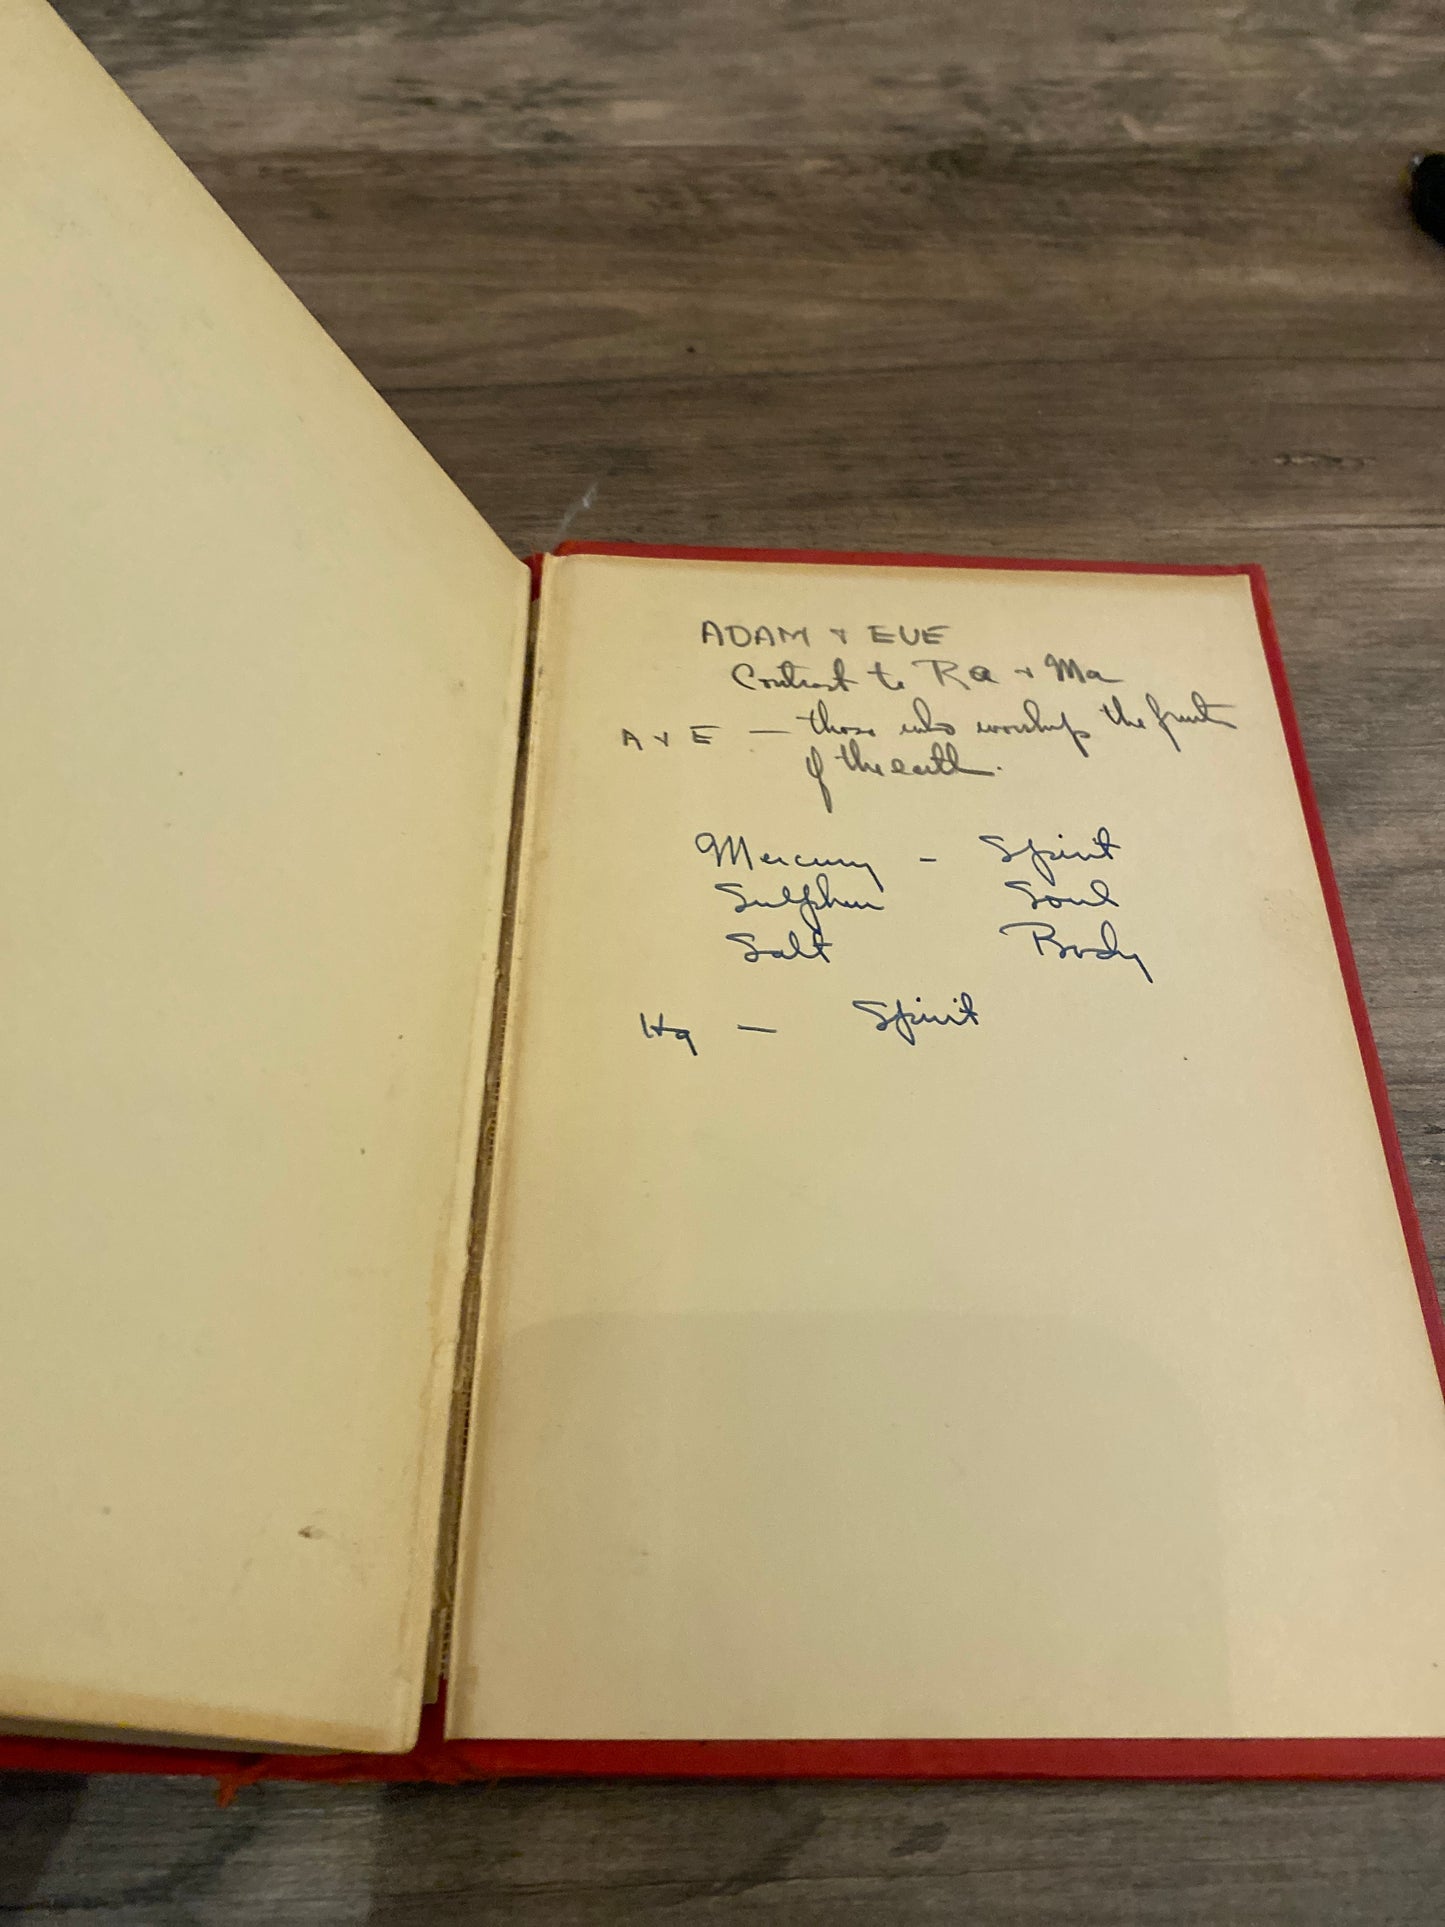 ADAM + EVE
Contrast to Ra + Ma
A + E — those who worship the fruits
of the earth.
Mercury - Spirit
Sulphur Soul
Salt Body
Hg — Spirit